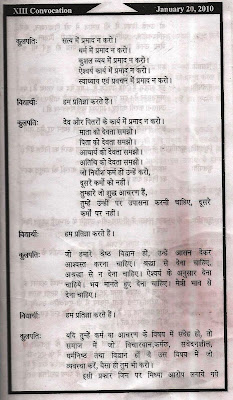 XIII Convocation January 20, 2010
कुलपति: सत्य में प्रमाद न करो।
धर्म में प्रमाद न करो।
कुशल व्यय में प्रमाद न करो।
ऐश्वर्य कार्य में प्रमाद न करो।
स्वाध्याय एवं प्रवचन में प्रमाद न करो।
विद्यार्थी: हम प्रतिज्ञा करते हैं।
कुलपति: देव और पितरों के कार्य में प्रमाद न करो।
माता को देवता समझो।
पिता को देवता समझो।
आचार्य को देवता समझो।
अतिथि को देवता समझो।
जो निर्दोष कर्म हों उन्हें करो,
दूसरे कर्मों को नहीं।
तुम्हारे जो शुद्ध आचरण हैं,
तुम्हें उन्हीं पर उपासना करनी चाहिए, दूसरे
कर्मों पर नहीं।
विद्यार्थी: हम प्रतिज्ञा करते हैं।
कुलपति: जो हमारे श्रेष्ठ विद्वान हों, उन्हें आसन देकर
आश्वस्त करना चाहिए। श्रद्धा से देना चाहिए,
अश्रद्धा से न देना चाहिए। ऐश्वर्य के अनुसार देना
चाहिये। भय मानते हुए देना चाहिए। मैत्री भाव से
देना चाहिए।
विद्यार्थी: हम प्रतिज्ञा करते हैं।
कुलपति: यदि तुम्हें कर्म या आचरण के विषय में संदेह हो, तो
समाज में जो विचारवान,कर्मठ, संवेदनशील,
धर्मनिष्ठ तथा विद्वान हों वे उस विषय में जो
व्यवहार करें, वैसा ही तुम भी करो।
इसी प्रकार जिन पर मिथ्या आरोप लगाये गये